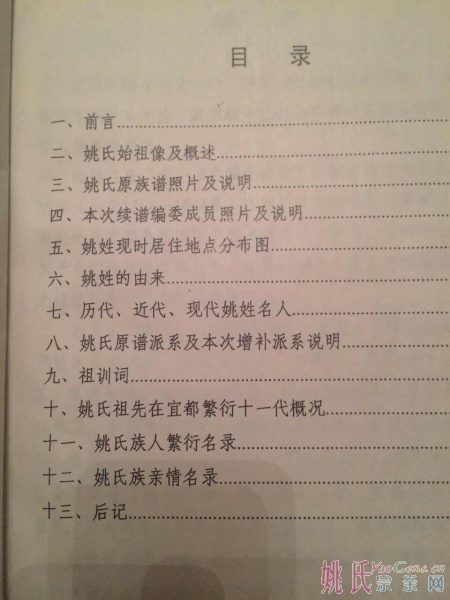 目 录
一、前言
二、姚氏始祖像及概述
三、姚氏原族谱照片及说明
四、本次续谱编委成员照片及说明
五、姚姓现时居住地点分布图
六、姚姓的由来
七、历代、近代、现代姚姓名人
八、姚氏原谱派系及本次增补派系说明
九、祖训词
十、姚氏祖先在宜都繁衍十一代概况
十一、姚氏族人繁衍名录
十二、姚氏族亲情名录
十三、后记
姚氏宗亲网
YaoGens.cn